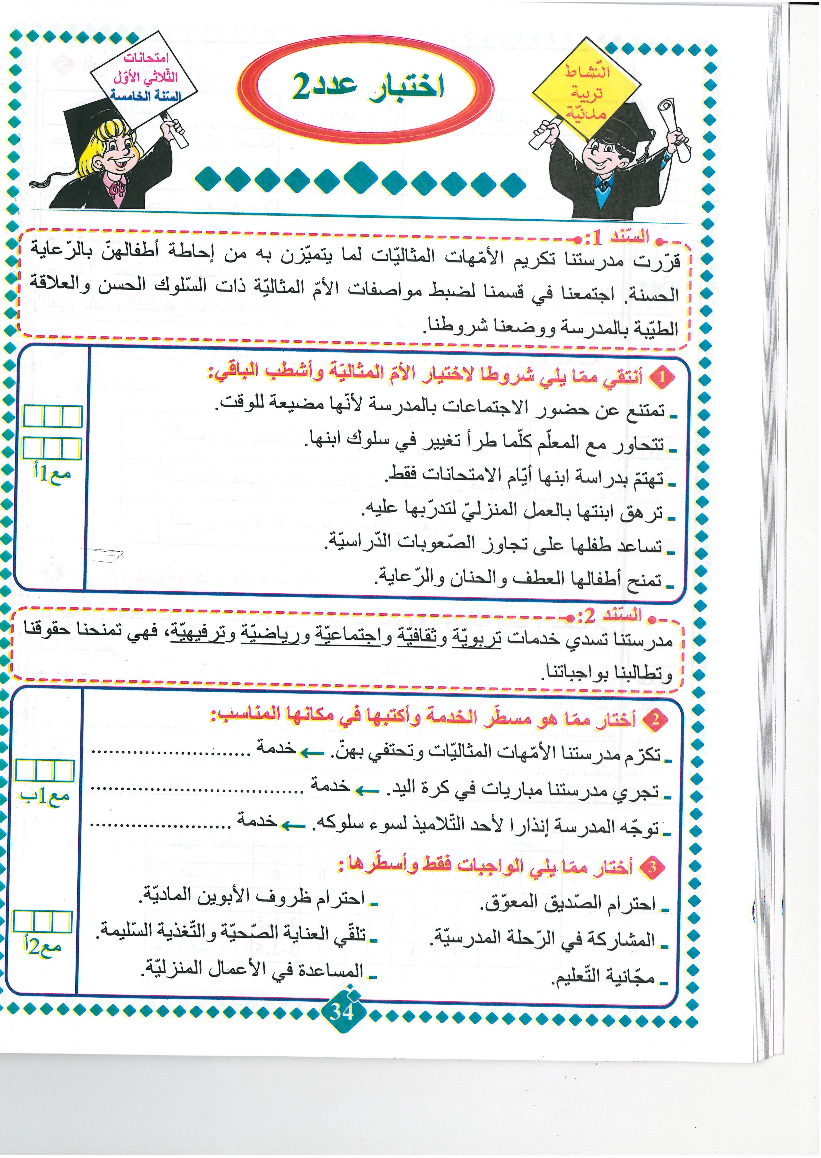 النّشاط
تربية
مدنيّة
اختبار عدد2
امتحانات
الثّلاثي الأوّل
السّنة الخامسة
السّند 1:
قرّرت مدرستنا تكريم الأمّهات المثاليّات لما يتميّزن به من إحاطة أطفالهنّ بالرّعاية
الحسنة. اجتمعنا في قسمنا لضبط مواصفات الأمّ المثاليّة ذات السّلوك الحسن والعلاقة
الطيّبة بالمدرسة ووضعنا شروطنا.
1 أنتقي ممّا يلي شروطا لاختيار الأمّ المثاليّة وأشطب الباقي:
ـ تمتنع عن حضور الاجتماعات بالمدرسة لأنّها مضيعة للوقت.
ـ تتحاور مع المعلّم كلّما طرأ تغيير في سلوك ابنها.
ـ تهتمّ بدراسة ابنها أيّام الامتحانات فقط.
ـ ترهق ابنتها بالعمل المنزليّ لتدرّبها عليه.
ـ تساعد طفلها على تجاوز الصّعوبات الدّراسيّة.
ـ تمنح أطفالها العطف والحنان والرّعاية.
مع1أ
السّند 2:
مدرستنا تسدي خدمات تربويّة وثقافيّة واجتماعيّة ورياضيّة وترفيهيّة، فهي تمنحنا حقوقنا
وتطالبنا بواجباتنا.
2 أختار ممّا هو مسطّر الخدمة وأكتبها في مكانها المناسب:
ـ تكرّم مدرستنا الأمّهات المثاليّات وتحتفي بهنّ. ← خدمة ...........................
ـ تجري مدرستنا مباريات في كرة اليد. ← خدمة ....................................
ـ توجّه المدرسة إنذارا لأحد التّلاميذ لسوء سلوكه. ← خدمة ........................
مع1ب
3 أختار ممّا يلي الواجبات فقط وأسطّرها:
ـ احترام الصّديق المعوّق. ـ احترام ظروف الأبوين الماديّة.
ـ المشاركة في الرّحلة المدرسيّة. ـ تلقّي العناية الصّحيّة والتّغذية السّليمة.
ـ مجّانية التّعليم. ـ المساعدة في الأعمال المنزليّة.
مع2أ
34